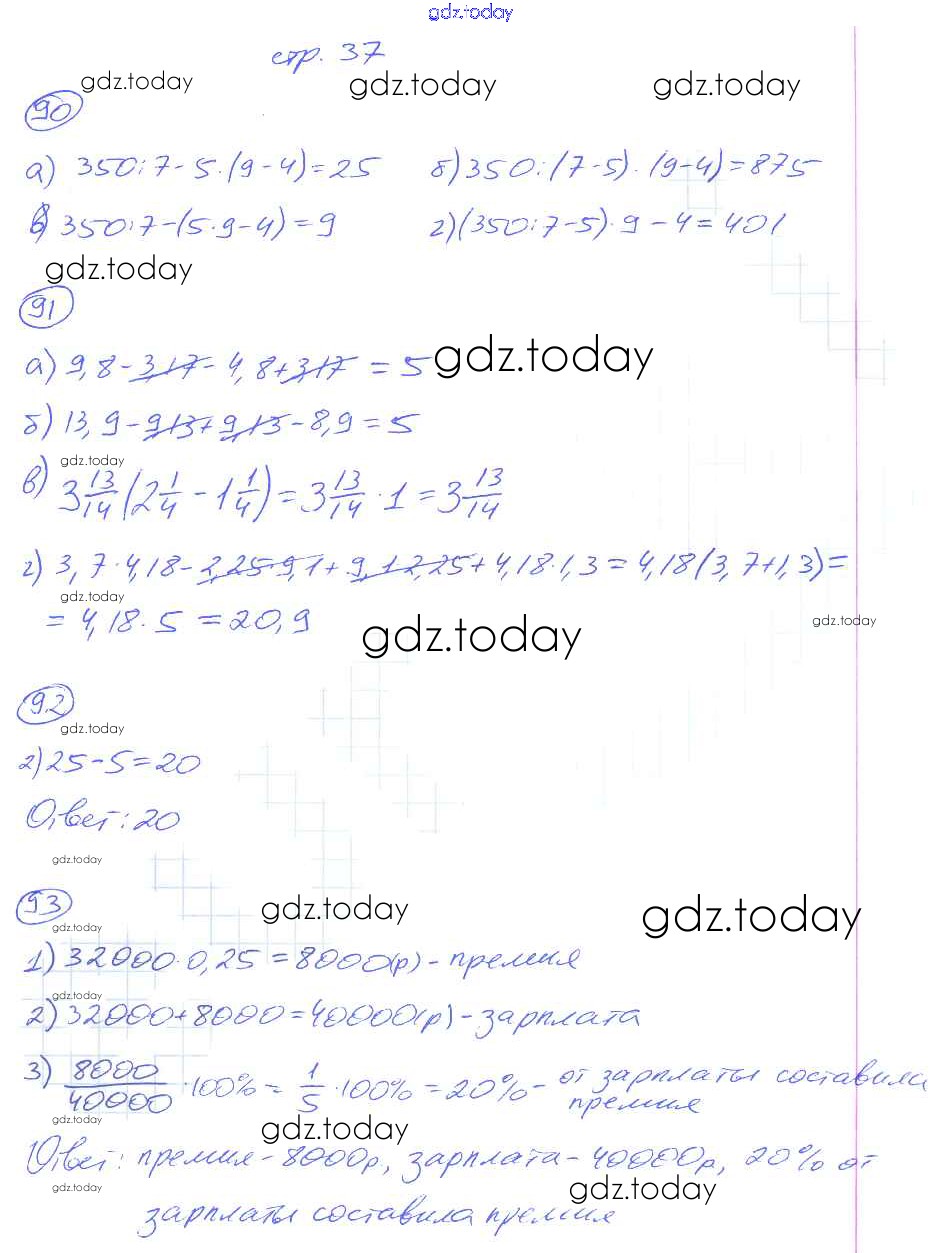 gdz.today
стр. 37
gdz.today gdz.today gdz.today
90
а) 350:7-5·(9-4)=25 б) 350:(7-5)·(9-4)=875
в) 350:7-(5·9-4)=9 г) (350:7-5)·9-4=401
gdz.today
91
а) 9,8-3,17-4,8+3,17=5 gdz.today
б) 13,9-9,13+9,13-8,9=5
gdz.today
в) 3 13/14 (2 1/4 - 1 1/4) = 3 13/14 · 1 = 3 13/14
г) 3,7·4,18-2,25·9,1+9,1·2,25+4,18·1,3=4,18(3,7+1,3)=
gdz.today gdz.today
=4,18·5=20,9 gdz.today
92
gdz.today
2) 25-5=20
Ответ: 20
gdz.today
93 gdz.today gdz.today
gdz.today
1) 32000·0,25=8000(р)-премия
gdz.today
2) 32000+8000=40000(р)-зарплата
3) 8000/40000 ·100% = 1/5 ·100% = 20% - от зарплаты составила
премия
gdz.today gdz.today
Ответ: премия-8000р, зарплата-40000р, 20% от
gdz.today gdz.today
зарплаты составила премия